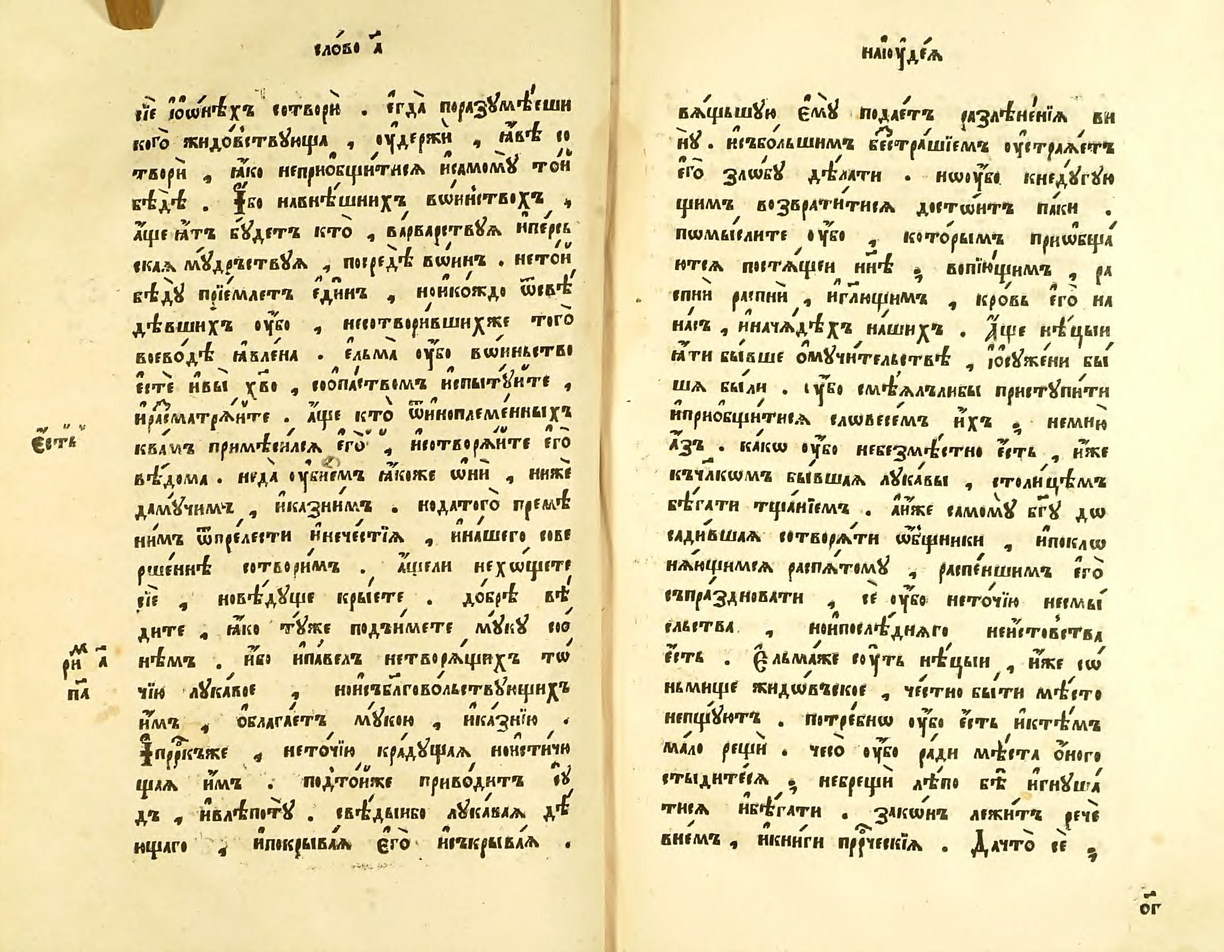 сло́во а҃
сїѐ і҆ѡ҆нѣ́хъ сотворѝ . є҆гда̀ поразꙋмѣ́еши
кого̀ жидо́вствꙋюща , ᲂу҆держѝ , ꙗ҆́вѣ со
творѝ , ꙗ҆́ко неприѡбщи́тисѧ и҆самомꙋ̀ то́й
бѣдѣ̀ . И҆́бо навнѣ́шнихъ вѡ́инствохъ ,
а҆́ще ꙗ҆́тъ бꙋ́детъ кто̀ , ва́рварствꙋѧ и҆пе́рсь
скаѧ мꙋ́дръствꙋѧ , посредѣ̀ вѡ́инъ . нето́й
бѣ́дꙋ прїе́млетъ є҆ди́нъ , нои҆ко́ждо ѿсвѣ́
дѣвшихъ ᲂу҆́бо , несотвори́вшихже того̀
воево́дѣ ꙗ҆влена̀ . є҆льма̀ ᲂу҆́бо вѡ́иньство
є҆стѐ и҆вы̀ хв҃о , соѻпа́ствомъ и҆спытꙋ́йте ,
и҆расматрѧ́йте . а҆́ще кто̀ ѿи҆ноплеме́нныхъ
ква́мъ примѣси́лсѧ є҆го̀ , и҆сотворѧ́йте є҆го̀
вѣ́дома . неда̀ ᲂу҆бїе́мъ ꙗ҆́коже ѻ҆нѝ , нижѐ
дамꙋ́чимъ , и҆казни́мъ . нодатого̀ премѣ́
нимъ ѿпре́лести и҆нече́стїѧ , и҆на́шего сове
рше́ннѣ сотвори́мъ . а҆́щели нехѡ́щете
сїѐ , новѣ́дꙋще кры́ете . до́брѣ вѣ́
дите , ꙗ҆́ко тꙋ́же подъи́мете мꙋ́кꙋ соѻ
нѣ́мъ . и҆́бо и҆па́велъ нетворѧ́щихъ тѡ
чїю лꙋка́вое , нои҆съблⷢ҇овольствꙋ́ющихъ
и҆́мъ , ѻ҆блага́етъ мꙋ́кою , и҆ка́знїю .
И҆прⷪ҇ркъже , нето́чїю крадꙋ́щаѧ нои҆стичю́
щаѧ и҆́мъ . подто́йже приво́дитъ сꙋ́
дъ , и҆влѣ́потꙋ . свѣ́дыибо лꙋка́ваѧ дѣ́
ющаго , и҆покрыва́ѧ є҆го̀ и҆съкрыва́ѧ .
є҆́сть
м
ри а҃
па҃
наі҆ᲂуде́ѧ
вѧ́щьшꙋю є҆мꙋ̀ подае́тъ разлѣне́нїѧ ви
нꙋ̀ . и҆събо́льшимъ бестра́шїемъ ᲂу҆стрѧ́етъ
є҆го̀ злѡ́бꙋ дѣ́лати . нѡᲂу҆́бо кнедꙋ́гꙋю
щимъ возврати́тисѧ досто́итъ па́ки .
пѡмы́слите ᲂу҆́бо , кото́рымъ приѡбща́
ютсѧ постѧ́щеи нн҃ѣ ; вопїю́щимъ , ра
спнѝ распнѝ , и҆гл҃ющимъ , кро́вь є҆го̀ на
на́съ , и҆начѧ́дѣхъ на́шихъ . А҆́ще нѣ́цыи
ꙗ҆́ти бы́вше ѻ҆мꙋчи́тельствѣ , і҆ѻсꙋ́жени бы́
шѧ бы́ли . ᲂу҆́бо смѣ́ѧлълибы пристꙋпи́ти
и҆приѻбщи́тисѧ словесе́мъ и҆́хъ ; немню̀
а҆́зъ . ка́кѡ ᲂу҆́бо небезмѣ́стно є҆́сть , и҆́же
къчл҃кѡмъ бы́вшаѧ лꙋка́вы , столи́цѣмъ
бѣ́гати тща́нїемъ . а҆и́же самомꙋ̀ бг҃ꙋ дѡ
сади́вшаѧ сотворѧ́ти ѻ҆́бщники , и҆поклѡ
нѧ́ющимсѧ распѧ́томꙋ , распе́ншимъ є҆го̀
съпра́здновати , сѐ ᲂу҆́бо нето́чїю несмы́
сльства , нои҆послѣ́днѧго неи́стовства
є҆́сть . Е҆льма́же сꙋ́ть нѣ́цыи , и҆́же сѡ́
ньмище жидѡ́въское , че́стно бы́ти мѣ́сто
непщꙋ́ютъ . потре́бнѡ ᲂу҆́бо є҆́сть и҆ктѣ́мъ
ма́ло рещѝ . чесо̀ ᲂу҆́бо ра́ди мѣ́ста ѻ҆́ного
стыди́тесѧ ; небрещѝ лѣ́по бѣ̀ и҆гнꙋша́
тисѧ и҆бѣ́гати . зако́нъ лежи́тъ рече́
внемъ , и҆кни́ги прⷪ҇рческїѧ . Да́что сѐ ;
о҃г